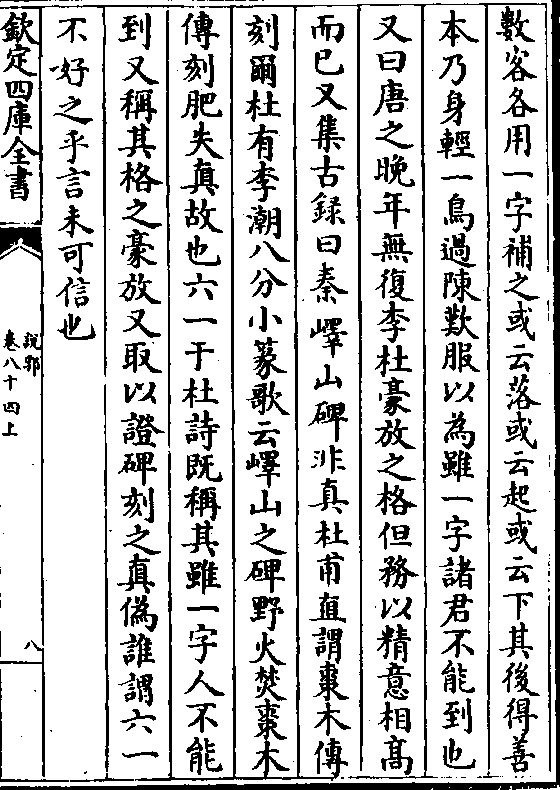 數客各用一字補之或云落或云起或云下其後得善
本乃身輕一鳥過陳歎服以為雖一字諸君不能到也
又曰唐之晚年無復李杜豪放之格但務以精意相高
而已又集古録曰秦嶧山碑非真杜甫直謂棗木傳
刻爾杜有李潮八分小篆歌云嶧山之碑野火焚棗木
傳刻肥失真故也六一于杜詩既稱其雖一字人不能
到又稱其格之豪放又取以證碑刻之真偽誰謂六一
不好之乎言未可信也
欽定四庫全書
說郛
卷八十四上
八